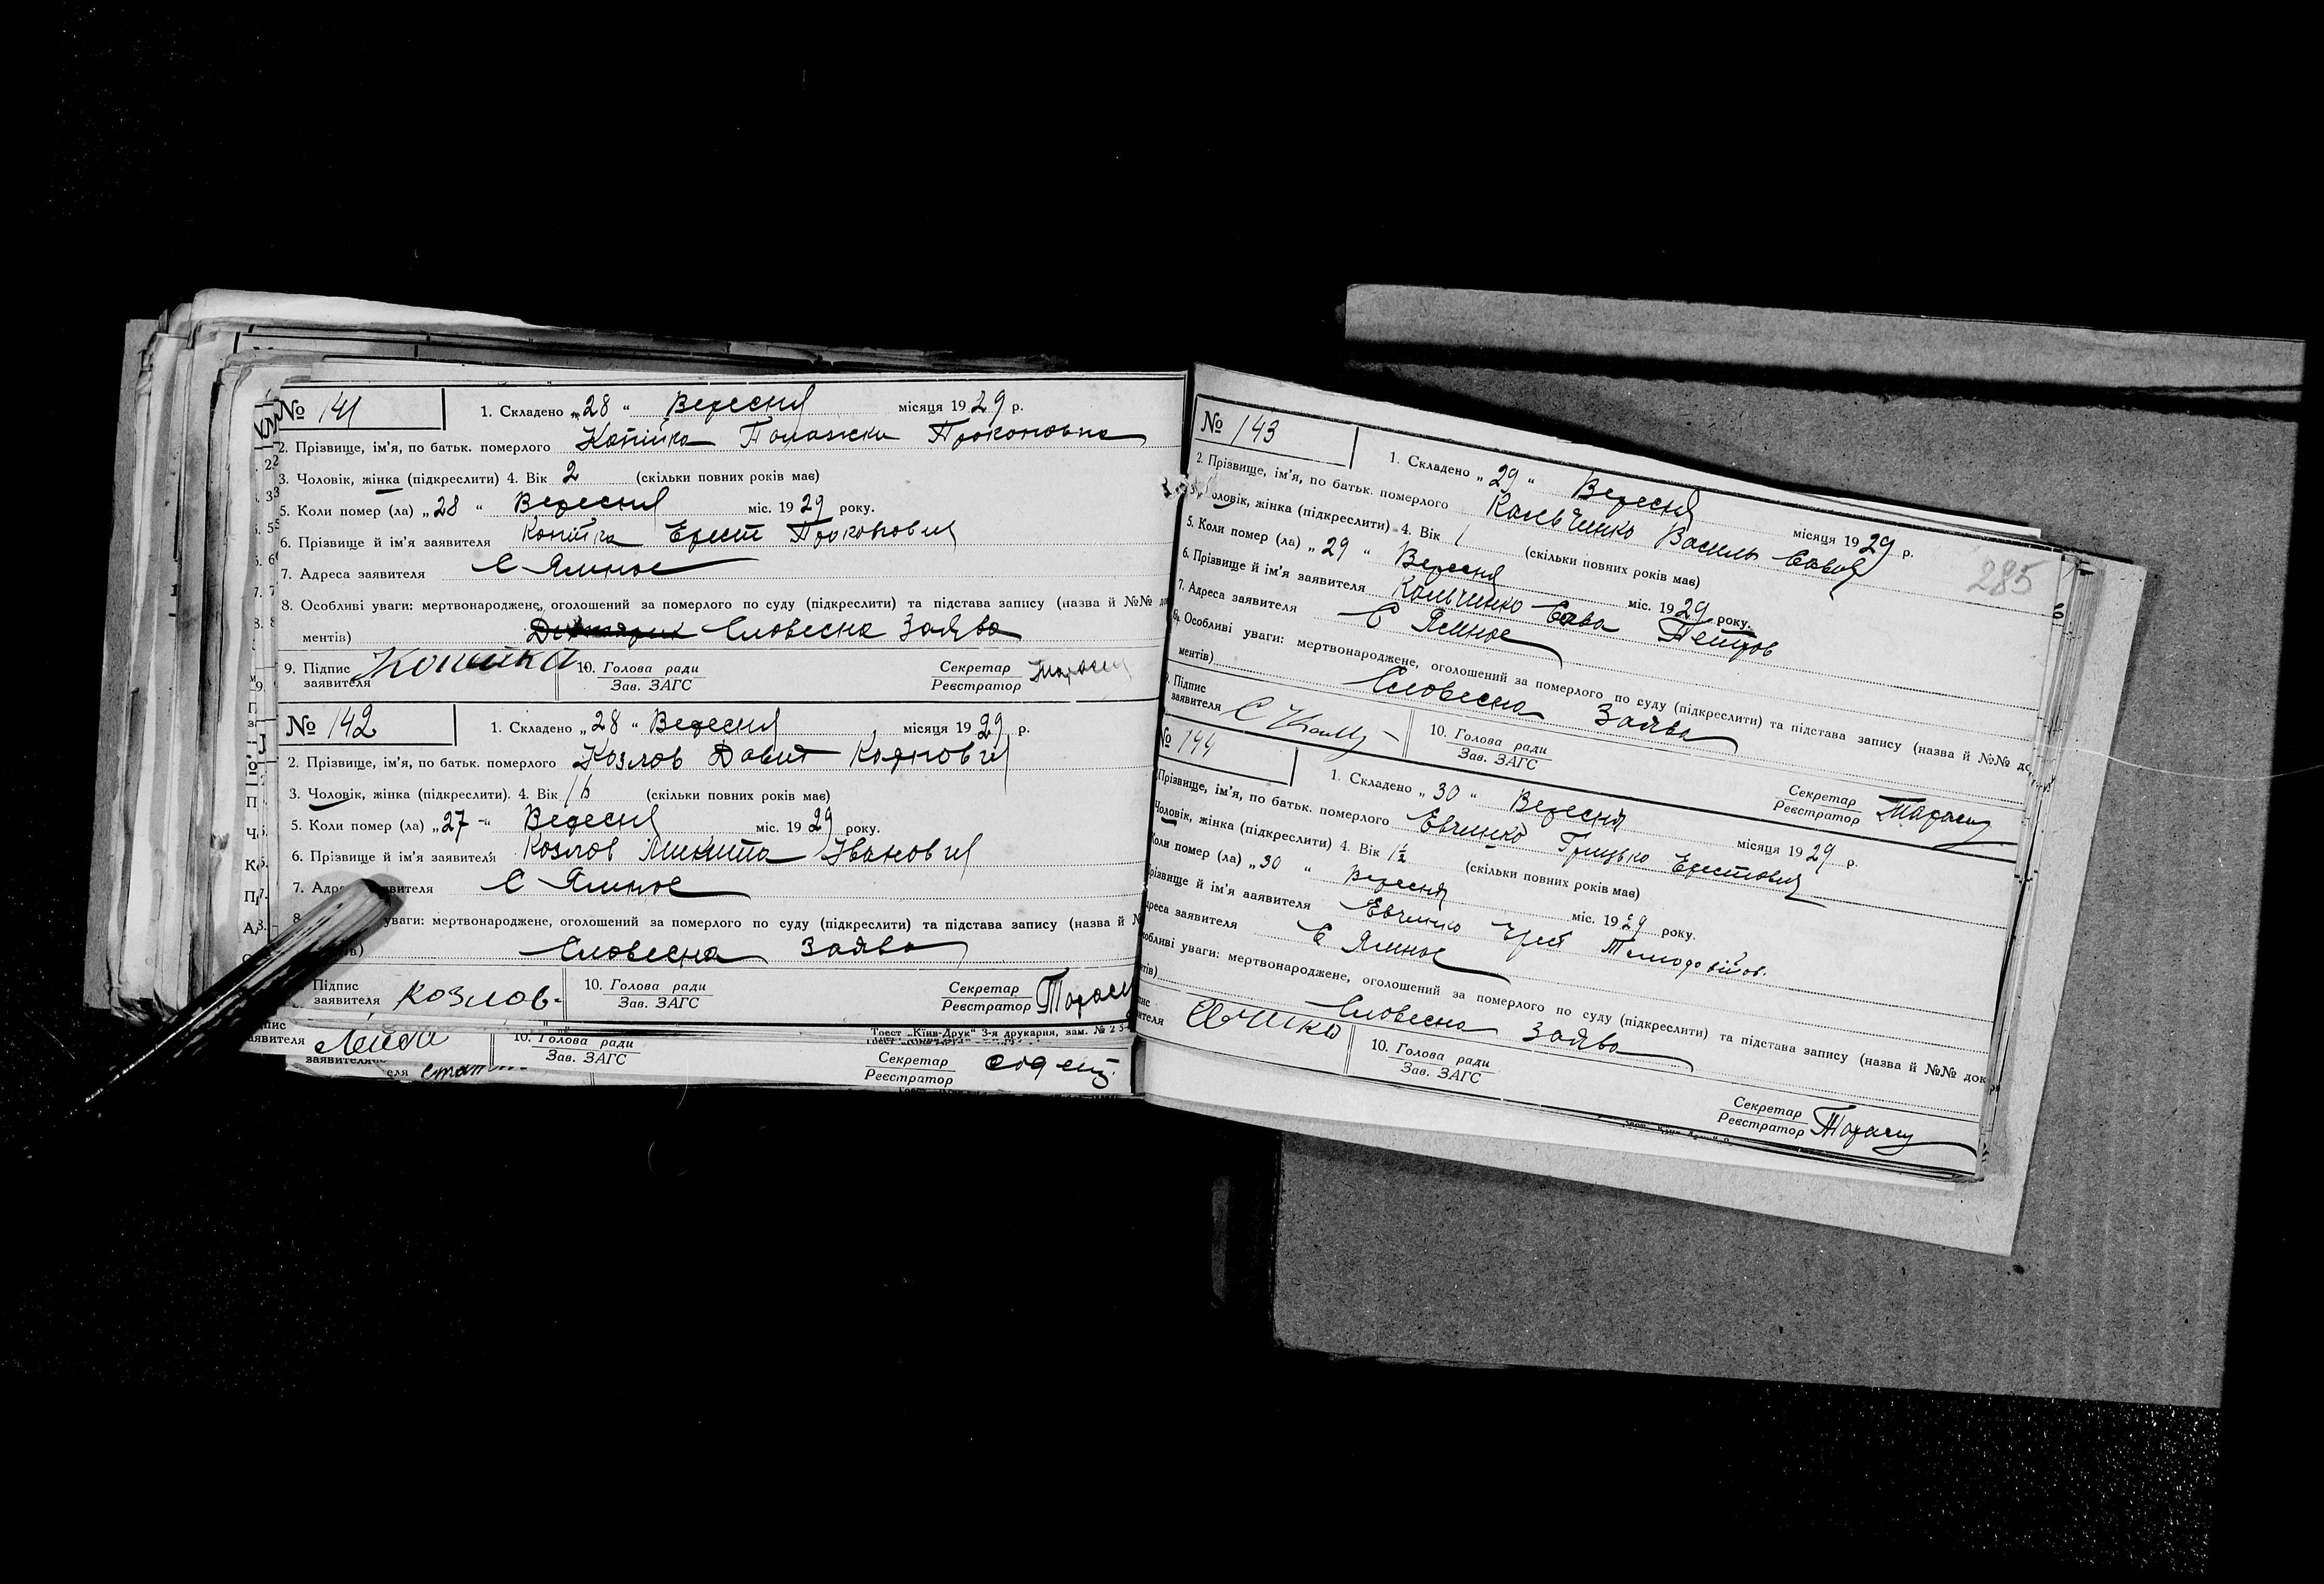 № 141
1. Складено „28“ Вересня місяця 1929 р.
2. Прізвище, ім'я, по батьк. померлого Копійка Палажка Прокоповна
3. Чоловік, жінка (підкреслити) 4. Вік 2 (скільки повних років має)
5. Коли помер (ла) „28“ Вересня міс. 1929 року.
6. Прізвище й ім'я заявителя Копійка Ерест Прокопович
7. Адреса заявителя С Ямное
8. Особливі уваги: мертвонароджене, оголошений за померлого по суду (підкреслити) та підстава запису (назва й №№ до
ментів) Словесна Заява
9. Підпис заявителя Копійка 10. Голова ради Зав. ЗАГС Секретар Реєстратор
№ 142
1. Складено „28“ Вересня місяця 1929 р.
2. Прізвище, ім'я, по батьк. померлого Козлов Давид
3. Чоловік, жінка (підкреслити). 4. Вік (скільки повних років має)
5. Коли помер (ла) „27“ Вересня міс. 1929 року.
6. Прізвище й ім'я заявителя Козлов Микита Іванович
7. Адре заявителя С Ямное
8. уваги: мертвонароджене, оголошений за померлого по суду (підкреслити) та підстава запису (назва й №
ів) Словесна Заява
Підпис заявителя Козлов 10. Голова ради Зав. ЗАГС Секретар Реєстратор
Трест „Київ-Друк“ 3-я друкарня, зам. №
заявителя 10. Голова ради Зав. ЗАГС Секретар Реєстратор
285
№ 143
1. Складено „29“ Вересня місяця 1929 р.
2. Прізвище, ім'я, по батьк. померлого Кольченко Василь Савич
3. Чоловік, жінка (підкреслити) 4. Вік 1 (скільки повних років має)
5. Коли помер (ла) „29“ Вересня міс. 1929 року.
6. Прізвище й ім'я заявителя Кольченко Сава Петров
7. Адреса заявителя С Ямное
8. Особливі уваги: мертвонароджене, оголошений за померлого по суду (підкреслити) та підстава запису (назва й №№ до
ментів) Словесна Заява
9. Підпис заявителя 10. Голова ради Зав. ЗАГС Секретар Реєстратор
№ 144
1. Складено „30“ Вересня місяця 1929 р.
Прізвище, ім'я, по батьк. померлого Евченко Грицько Ерестович
Чоловік, жінка (підкреслити) 4. Вік 1½ (скільки повних років має)
Коли помер (ла) „30“ Вересня міс. 1929 року.
різвище й ім'я заявителя Евченко Ерест
дреса заявителя С Ямное
собливі уваги: мертвонароджене, оголошений за померлого по суду (підкреслити) та підстава запису (назва й №№ док
нтів) Словесна Заява
пис ителя Евченко 10. Голова ради Зав. ЗАГС Секретар Реєстратор